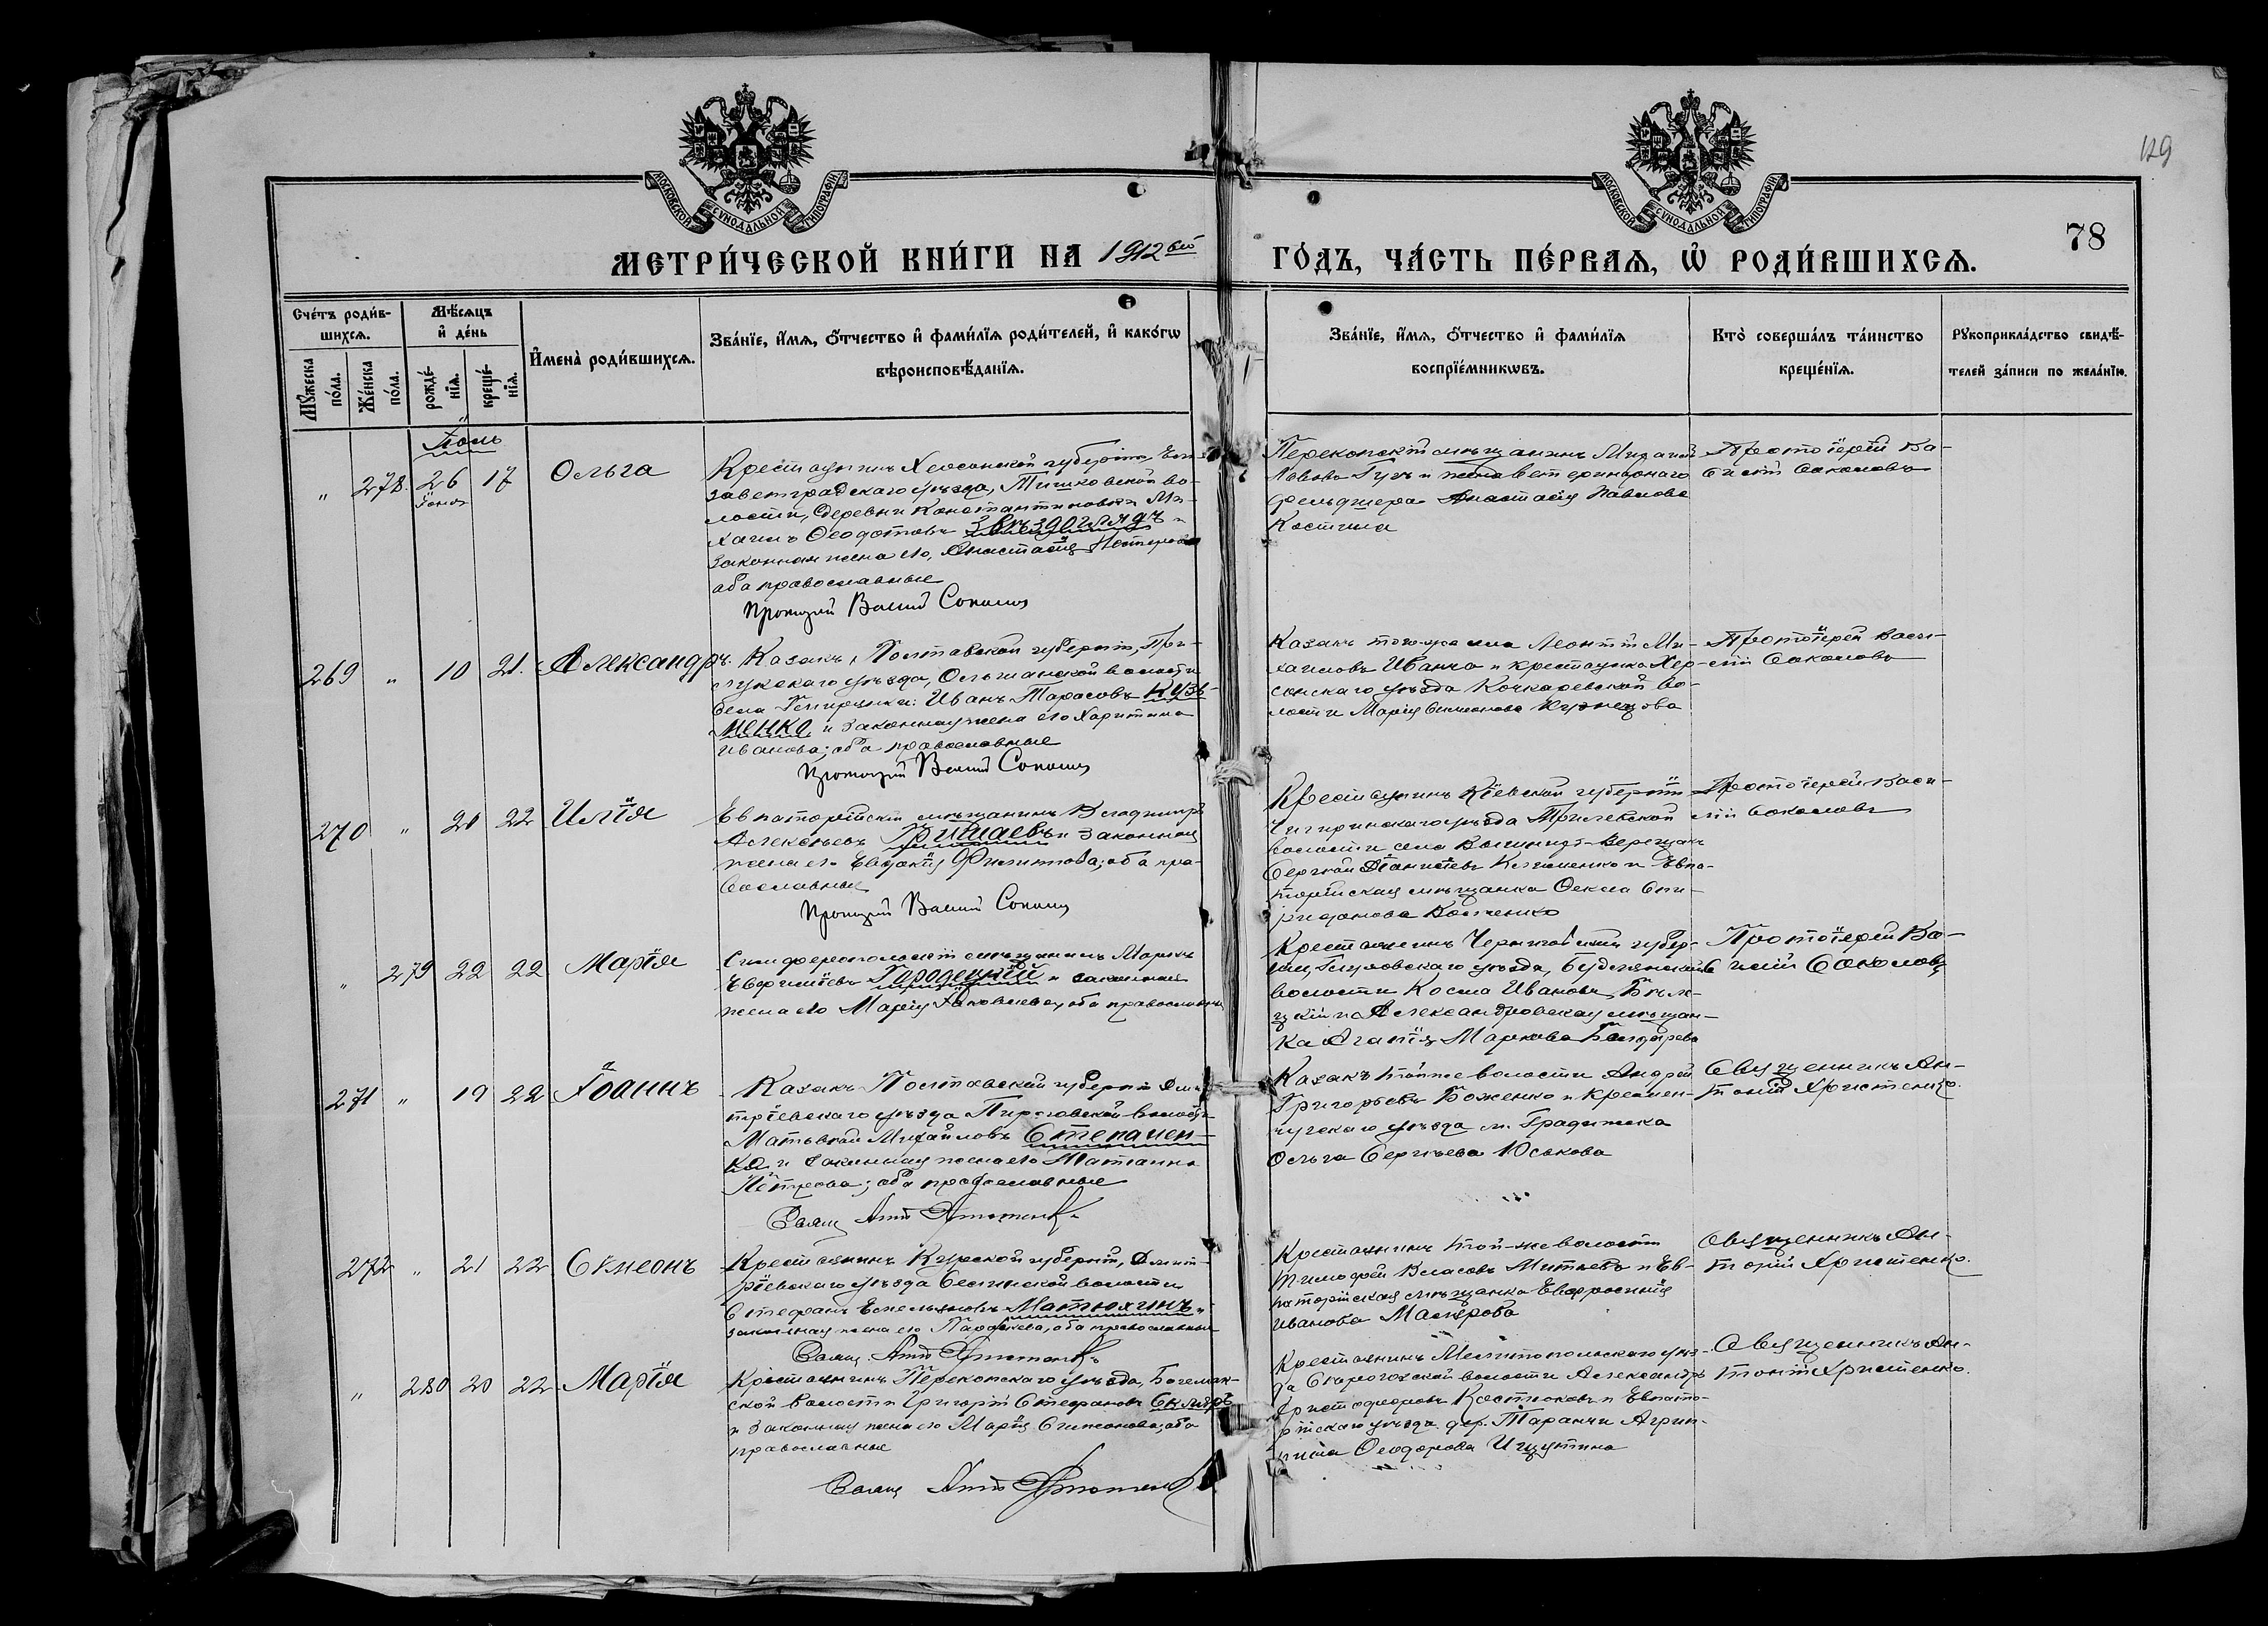 129
78
МОСКОВСКОЙ СѴНОДАЛЬНОЙ ТИПОГРАФІИ
МОСКОВСКОЙ СѴНОДАЛЬНОЙ ТИПОГРАФІИ
МЕТРИ́ЧЕСКОЙ КНИ́ГИ НА 1912ый ГО́ДЪ, ЧА́СТЬ ПЕ́РВАѦ, Ѡ҆ РОДИ́ВШИХСѦ.
Сче́тъ роди́в-
шихсѧ.
Мꙋ́жеска по́ла.
Же́нска по́ла.
Мѣ́сѧцъ
и҆ де́нь
рожде́-
нїѧ.
креще́-
нїѧ.
И҆мена̀ роди́вшихсѧ.
Зва́нїе, и҆́мѧ, ѻ҆́тчество и҆ фами́лїѧ роди́телей, и҆ како́гѡ
вѣроисповѣ́данїѧ.
Зва́нїе, и҆́мѧ, ѻ҆́тчество и҆ фами́лїѧ
воспрїе́мникѡвъ.
Кто̀ соверша́лъ та́инство
креще́нїѧ.
Рꙋкоприкла́дство свидѣ́-
телей за́писи по жела́нїю.
Іюль
" 278. 26 17 Ольга
Іюня
Крестьянинъ Херсонской губерніи, Ели-
заветградскаго уѣзда, Тишковской во-
лости, деревни Константиновки Ми-
хаилъ Ѳеодотовъ Звѣздогляд и
законная жена его, Анастасія Нестерова
оба православные
Протоіерей Василій Соколовъ
Перекопскій мѣщанинъ Михаилъ
Гузь и жена ветеринарнаго
фельдшера Анастасія Павлова
Костина
Протоіерей Ва-
силій Соколовъ
269 " 10 21. Александръ.
Казакъ, Полтавской губерніи, При-
лукскаго уѣзда, Ольшанской волости
села Иванъ Тарасовъ Кузь-
менко и законная жена его Харитина
Иванова; оба православные
Протоіерей Василій Соколовъ
Казакъ того-же села Леонтій Ми-
хаиловъ Иванча и крестьянка Хер-
сонскаго уѣзда Кочкаревской во-
лости Марія Симеонова Кузнецова
Протоіерей Васи-
лій Соколовъ
270 " 20 22 Илія
Евпаторійскій мѣщанинъ Владиміръ
Алексѣевъ Гришаевъ и законная
жена его Евдокія Филиппова; оба пра-
вославные
Протоіерей Василій Соколовъ
Крестьянинъ Кіевской губерніи
Чигиринскаго уѣзда Трилѣсской
волости села
Сергѣй Клименко и Евпа-
торійская мѣщанка Ѳекла Спи-
ридонова
Протоіерей Васи-
лій Соколовъ
" 279 22 22 Марія
Симферопольскій мѣщанинъ Маркъ
Евфиміевъ Городецкій и законная
жена его Марія Яковлева, оба православные
Крестьянинъ Черниговской губер-
ніи, Глуховскаго уѣзда,
волости Косма Ивановъ Бѣль-
скій и Александровская мѣщан-
ка Агапія Маркова Бондарева
Протоіерей Ва-
силій Соколовъ
271 " 19 22 Іоаннъ
Казакъ Полтавской губерніи
уѣзда Пироговской волости
Матвѣй Михайловъ Степанен-
ко и законная жена его Матіанна
Петрова; оба православные
Священ. Антоній Христенко
Казакъ той-же волости Андрей
Григорьевъ Боженко и Кремен-
чугскаго уѣзда м. Градижска
Ольга Сергѣева Юськова
Священникъ Ан-
тоній Христенко.
272 " 21 22 Симеонъ
Крестьянинъ Курской губерніи, Дмит-
ріевскаго уѣзда волости
Стефанъ Емельяновъ Матюхинъ и
законная жена его оба православные
Священ. Антоній Христенко
Крестьянинъ той-же волости
Тимофей Власовъ Митяевъ и Ев-
паторійская мѣщанка Евфросинія
Иванова
Священникъ Ан-
тоній Христенко.
" 280 20 22 Марія
Крестьянинъ Перекопскаго уѣзда, Богемк-
ской волости Григорій Стефановъ Скляръ
и законная жена его Марія Симонова; оба
православные
Священ. Антоній Христенко
Крестьянинъ Мелитопольскаго уѣз-
да волости Александръ
Христофоровъ Костюковъ и Евпато-
рійскаго уѣзда дер. Таранчи Агрип-
пина Ѳеодорова Ищутина
Священникъ Ан-
тоній Христенко.